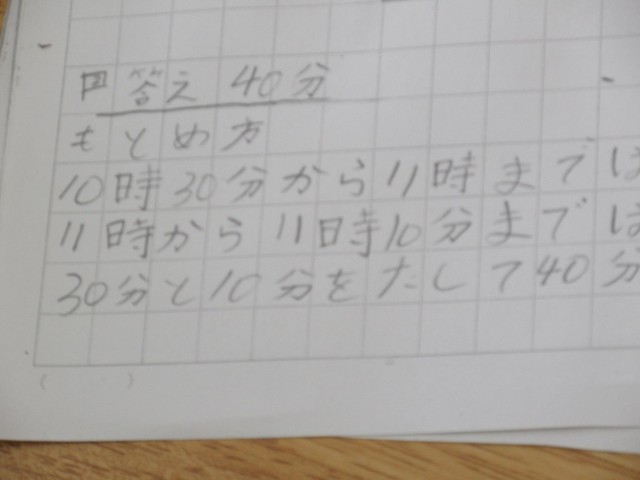 答え 40分
もとめ方
10時30分から11時までは
11時から11時10分までは
30分と10分をたして40分